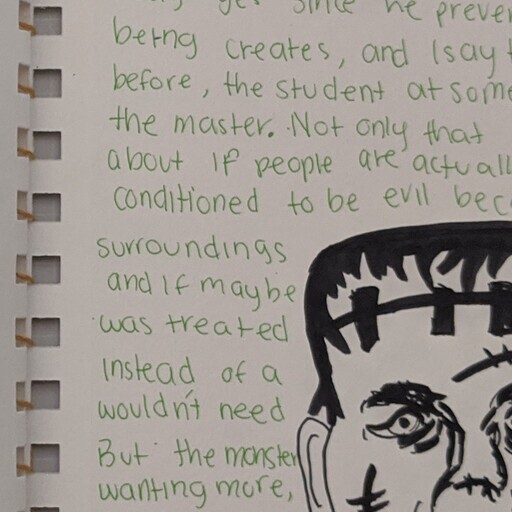 since he preve
being creates, and I say
before, the student at som
the master. Not only that
about if people are actuall
conditioned to be evil bec
surroundings
and if maybe
was treated
instead of a
wouldn't need
But the monster
wanting more,